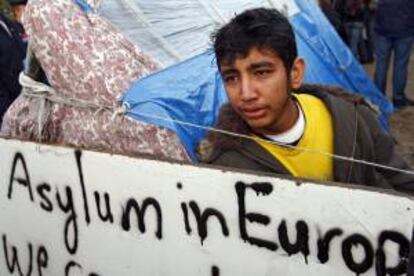 Asylum in Europe
we